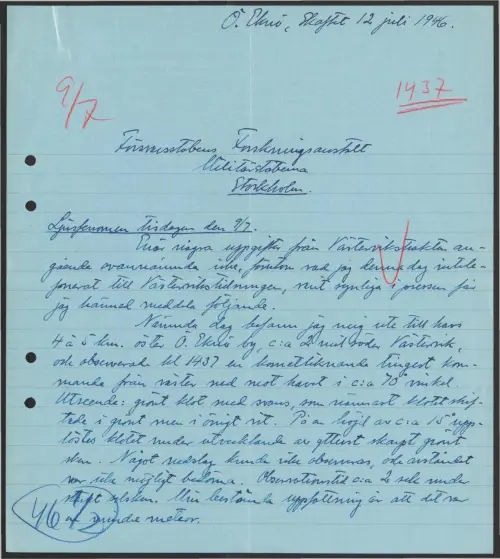 Ö. Eknö, Skaftet 12 juli 1946.
9/7
1437
Försvarsstabens Forskningsanstalt
Militärstaberna
Stockholm.
Ljusfenomen tisdagen den 9/7.
Enär några uppgifter från Västervikstrakten an-
gående ovannämnda icke, förutom vad jag denna dag intele-
fonerat till Västervikstidningen, varit synliga i pressen får
jag härmed meddela följande.
Nämnda dag befann jag mig ute till havs
4 à 5 km. öster Ö. Eknö by, c:a 2 mil söder Västervik,
och observerade kl 1437 en kometliknande tingest kom-
mande från väster ned mot havet i c:a 70° vinkel.
Utseende: grönt klot med svans, som närmast klotet skif-
tade i grönt men i övrigt vit. På en höjd av c:a 15° upp-
löstes klotet under utvecklande av ytterst skarpt grönt
sken. Något nedslag kunde icke observeras, och avståndet
var icke möjligt bedöma. Observationstid c:a 2 sek under
skarpt solsken. Min bestämda uppfattning är att det var
en mindre meteor.
46